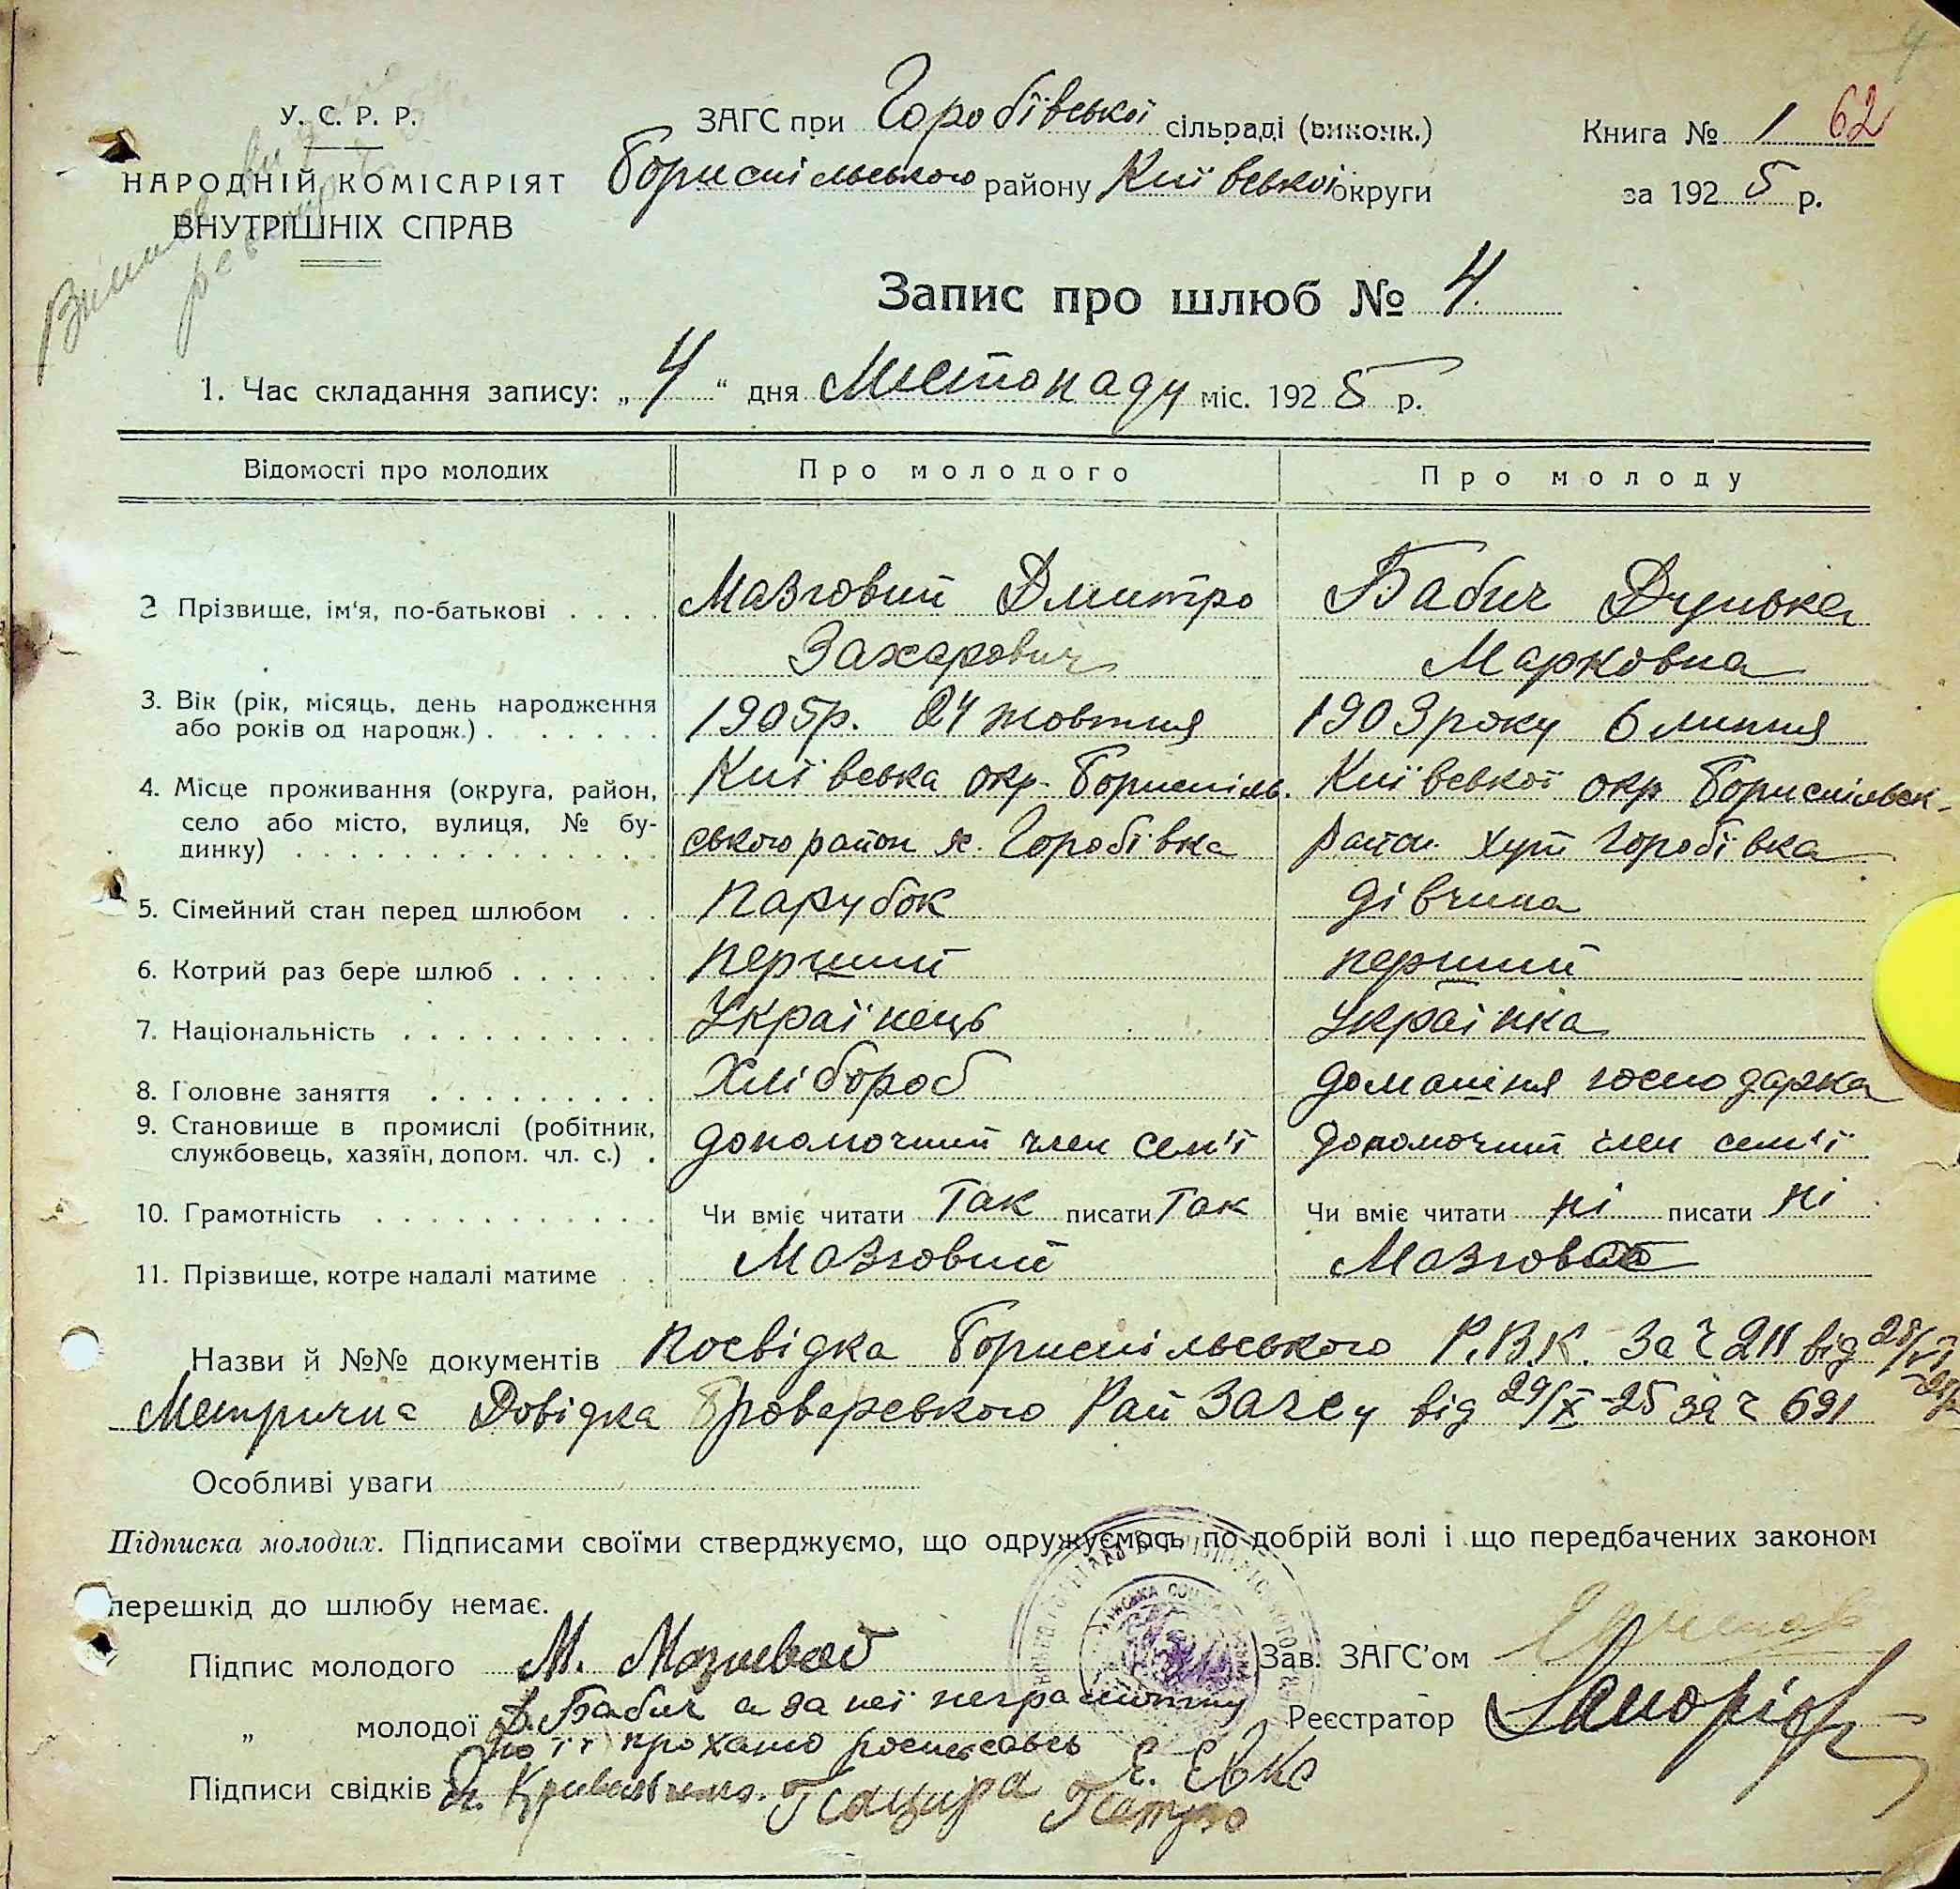 У. С. Р. Р.
НАРОДНІЙ КОМІСАРІЯТ
ВНУТРІШНІХ СПРАВ
ЗАГС при Горобївської сільраді (виконк.)
Бориспільського району Київської округи
Книга № 1 62
за 1925 р.
4
Запис про шлюб № 4.
1. Час складання запису: „4“ дня Листопаду міс. 1925 р.
Відомості про молодих Про молодого Про молоду
2 Прізвище, ім'я, по-батькові . . . . Мазговий Дмитро Захарович Бабич Дунька Марковна
3. Вік (рік, місяць, день народження або років од народж.) . . . . . . . 1905р. 24 жовтня 1909 року 6 липня
4. Місце проживання (округа, район, село або місто, вулиця, № будинку) . . . . . . . Київська окр. Бориспільського район х. Горобївка Київської окр Бориспільськ- Район. Хут Горобївка
5. Сімейний стан перед шлюбом . . Парубок дівчина
6. Котрий раз бере шлюб . . . . . . перший перший
7. Національність . . . . . . . . . . Українець Українка
8. Головне заняття . . . . . . . . . Хлібороб домашня господарка
9. Становище в промислі (робітник, службовець, хазяїн, допом. чл. с.) . допомочний член сем'ї допомочний член сем'ї
10. Грамотність . . . . . . . . . . . Чи вміє читати Так писати Так Чи вміє читати ні писати ні
11. Прізвище, котре надалі матиме . . Мазговий Мазговой
Назви й №№ документів Посвідка Бориспільського Р.В.К. За ч 211 від 28/VI
Метрична Довідка Броварского Рай Загсу від 29/X-25 за ч 691
Особливі уваги
Підписка молодих. Підписами своїми стверджуємо, що одружуємось по добрій волі і що передбачених законом
перешкід до шлюбу немає.
Підпис молодого М. Мазговой Зав. ЗАГС'ом
„ молодої Д. Бабич а за неї неграмотну Реєстратор
по її проханю росписавсь Є. Євко
Підписи свідків Кацюра Петро